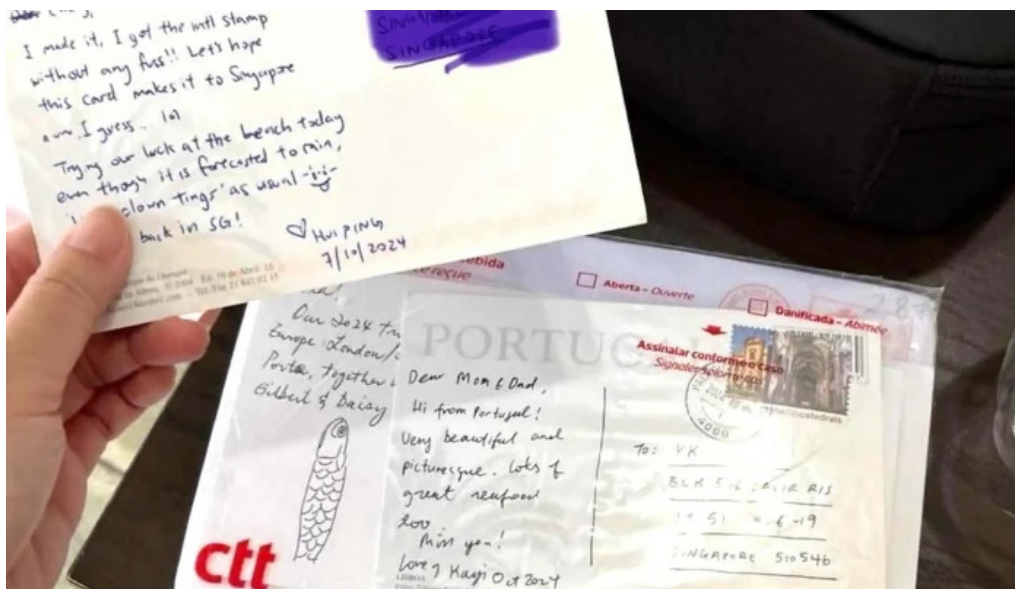 I made it, I got the intl stamp
without any fuss!! Let's hope
this card makes it to Singapore
I guess... lol
Trying our luck at the beach today
even though it is forecasted to rain,
clown tings' as usual
back in SG!
♡ HUI PING
7/10/2024
SINGAPORE
SINGAPORE
Aberta - Ouverte
Danificada - Abimée
Assinalar conforme o caso
Our 2024
Europe: London/
Porto, together
Gilbert & Daisy
PORTUGAL
Dear Mom & Dad,
Hi from Portugal!
Very beautiful and
picturesque. Lots of
great seafood
too
Miss you!
Love, Kayi Oct 2024
LISBOA
4000
To: VK
BLK
RIS
SINGAPORE 510546
ctt